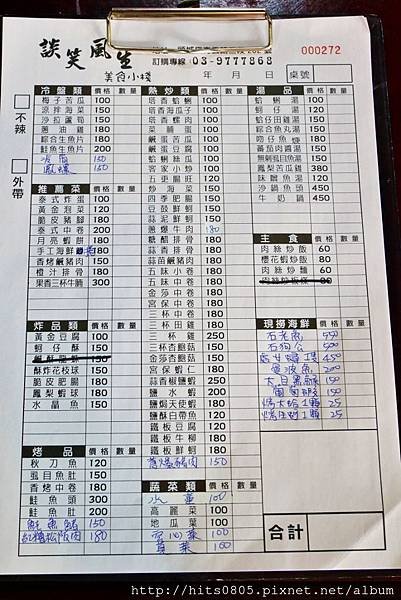 談笑風生
美食小棧
訂購專線 03-9777868
000272
年 月 日 桌號
不辣
外帶
冷盤類 價格 數量
梅子苦瓜 100
涼拌海菜 150
沙拉蘆筍 150
蔥油雞 180
綜合生魚片 180
鮭魚生魚片 200
150
150
推薦菜 價格 數量
泰式炸蛋 100
黃金泡菜 120
脆皮豬腳 200
泰式中卷 200
月亮蝦餅 180
手工海鮮 180
香烤鹹豬肉 180
橙汁排骨 180
果香三杯牛腩 300
炸品類 價格 數量
黃金豆腐 100
蚵仔酥 150
酥炸花枝球 150
脆皮肥腸 180
鳳梨蝦球 180
水晶魚 150
烤品 價格 數量
秋刀魚 120
虱目魚肚 150
香烤中卷 180
鮭魚頭 300
鮭魚肚 200
150
松阪肉 180
熱炒類 價格 數量
塔香蛤蜊 100
塔香海瓜子 100
塔香螺肉 100
菜脯蛋 100
鹹蛋苦瓜 100
鹹蛋豆腐 100
蛤蜊絲瓜 100
客家小炒 100
五更腸旺 120
炒海菜 150
四季肥腸 150
豆鼓鮮蚵 150
蒜泥鮮蚵 150
蔥爆牛肉 180
糖醋排骨 180
蒜香排骨 180
蒜苗鹹豬肉 180
五味小卷 180
五味中卷 180
金莎中卷 180
宮保中卷 180
三杯中卷 180
三杯田雞 180
三杯雞 250
三杯杏鮑菇 150
金莎杏鮑菇 150
宮保蝦仁 180
蒜香椒鹽蝦 250
鹽水蝦 200
鹽焗天使蝦 180
鹽酥白帶魚 180
鐵板豆腐 120
鐵板牛柳 180
鐵板鮮蚵 180
豬肉 150
蔬菜類 價格 數量
水蓮 100
高麗菜 100
地瓜菜 100
空心菜 100
100
湯品 價格 數量
蛤蜊湯 100
蚵仔湯 100
蛤仔田雞湯 150
綜合魚丸湯 150
吻仔魚羹 150
蕃茄肉醬湯 150
無刺虱目魚湯 150
鳳梨苦瓜雞 380
味噌魚湯 120
沙鍋魚頭 450
牛奶鍋 450
主食 價格 數量
肉絲炒飯 60
櫻花蝦炒飯 80
肉絲炒麵 60
肉絲炒板條 80
現撈海鮮 價格 數量
石老魚 550
石狗公 500
450
200
150
葡萄蝦 150
烤大蛤1顆 25
烤生蚵1顆 25
合計
http://hits0805.pixnet.net/album